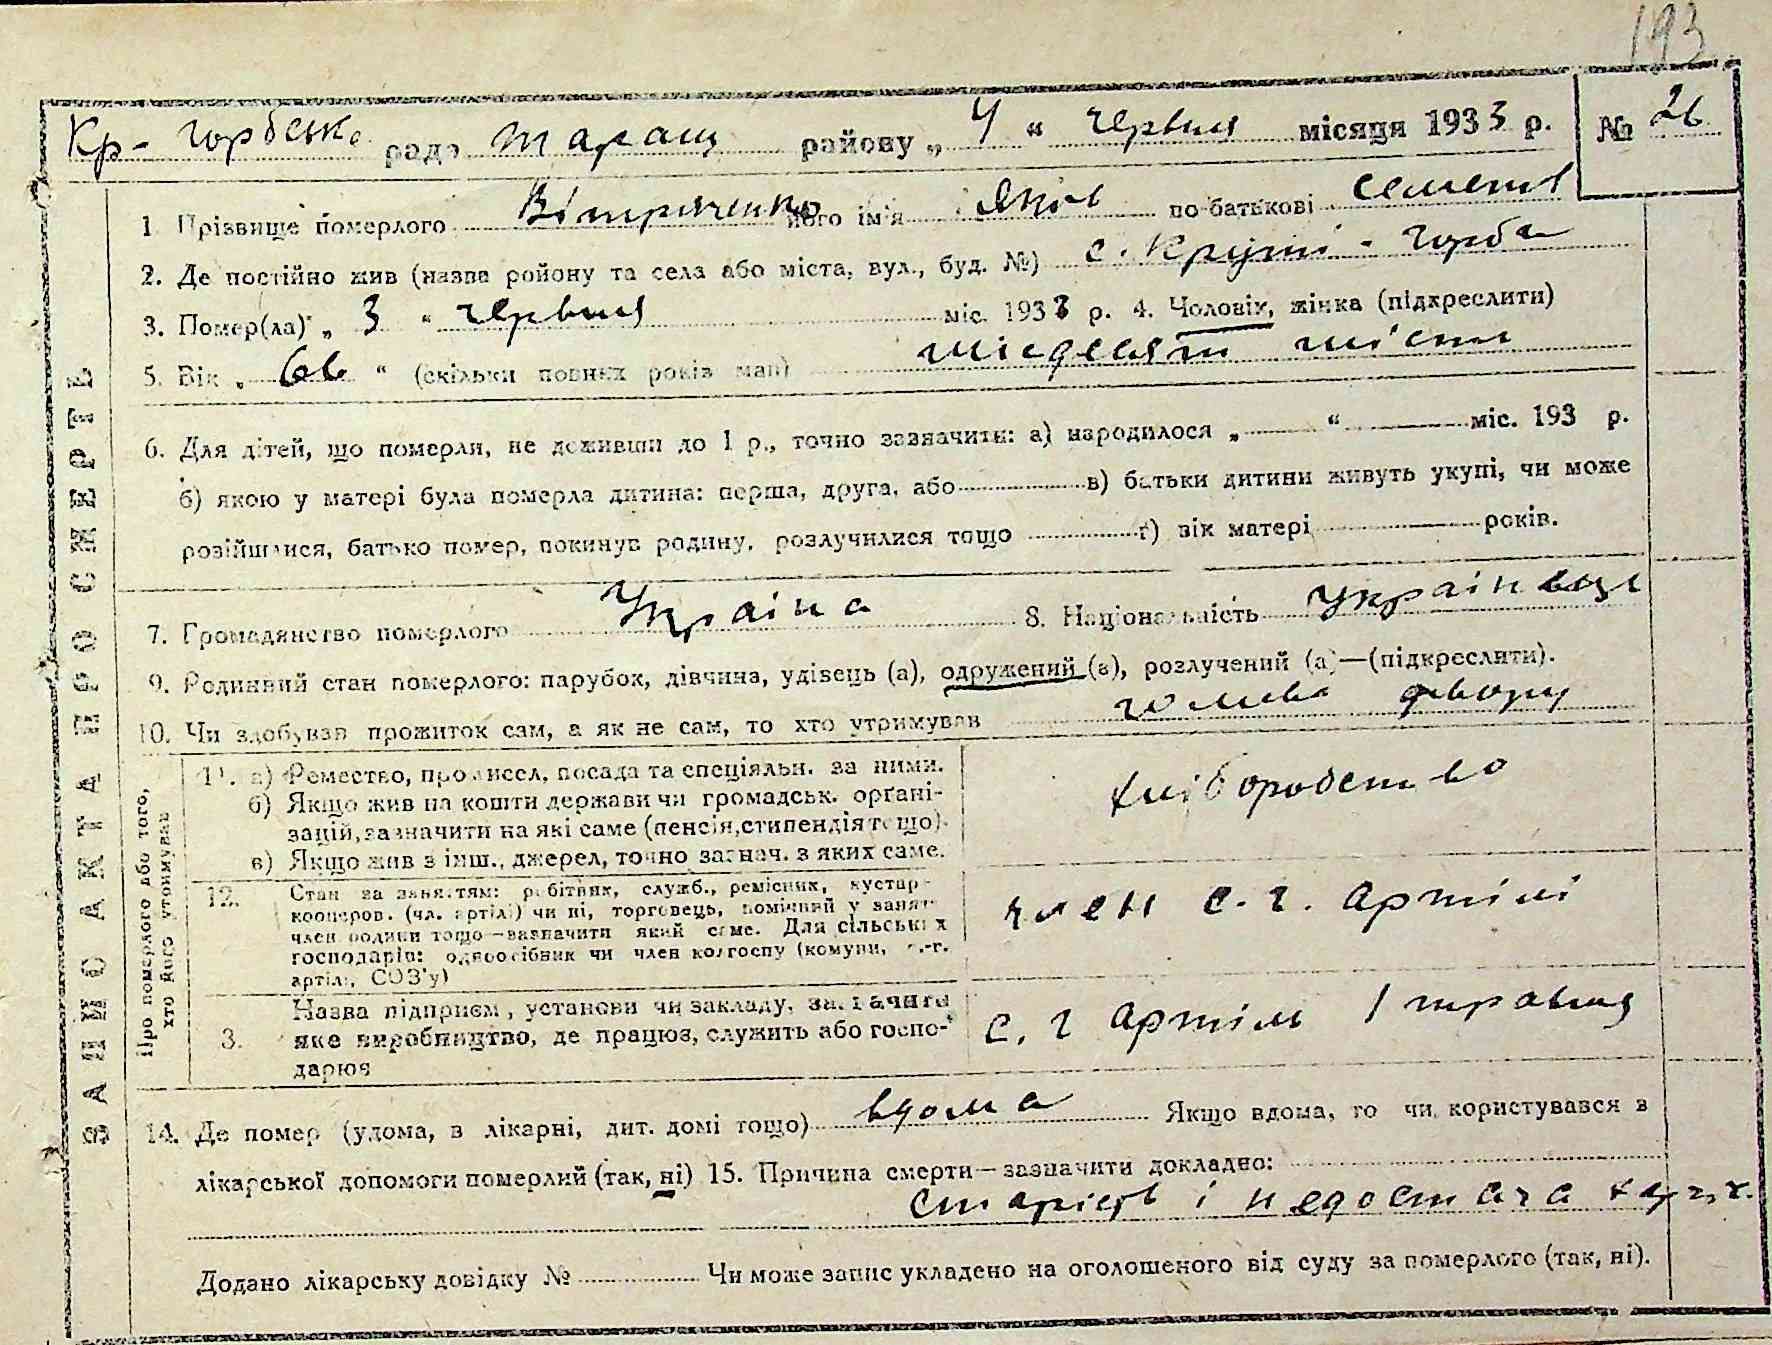 193
Кр-Горбська рада Таращ району „ 4 “ червня місяця 1933 р. № 26
ЗАПИС АКТА ПРО СМЕРТЬ
1. Прізвище померлого Вітряченко його ім'я Яків по-батькові Семенів
2. Де постійно жив (назва ройону та села або міста, вул., буд. №) с. Круті-Горба
3. Помер(ла) „ 3 “ червня міс. 1933 р. 4. Чоловік, жінка (підкреслити)
5. Вік „ 66 “ (скільки повних років мав) шісдевят шість
6. Для дітей, що померли, не доживши до 1 р., точно зазначити: а) народилося „ “ міс. 193 р.
б) якою у матері була померла дитина: перша, друга, або в) батьки дитини живуть укупі, чи може
розійшлися, батько помер, покинув родину, розлучилися тощо г) вік матері років.
7. Громадянство померлого Україна 8. Національність
9. Родинний стан померлого: парубок, дівчина, удівець (а), одружений (а), розлучений (а)—(підкреслити).
10. Чи здобував прожиток сам, а як не сам, то хто утримував голова двору
Про померлого або того, хто його утримував
11. а) Ремество, промисел, посада та спеціяльн. за ними.
б) Якщо жив на кошти держави чи громадськ. органі-
зацій, зазначити на які саме (пенсія, стипендія тощо).
в) Якщо жив з інш., джерел, точно зазнач. з яких саме.
хліборобство
12. Стан за заняттям: робітник, служб., ремісник, кустар-
кооперов. (чл. артілі) чи ні, торговець, помічний у занят.
член родини тощо—зазначити який саме. Для сільських
господарів: одноосібник чи член колгоспу (комуни, с.-г.
артілі, СОЗ'у)
член с.г. артілі
3. Назва підприєм., установи чи закладу, зазначити
яке виробництво, де працює, служить або госпо-
дарює
с. г артіль 1 травня
14. Де помер (удома, в лікарні, дит. домі тощо) вдома Якщо вдома, то чи користувався в
лікарської допомоги померлий (так, ні) 15. Причина смерти—зазначити докладно:
старість і недостача харч.
Додано лікарську довідку № Чи може запис укладено на оголошеного від суду за померлого (так, ні).